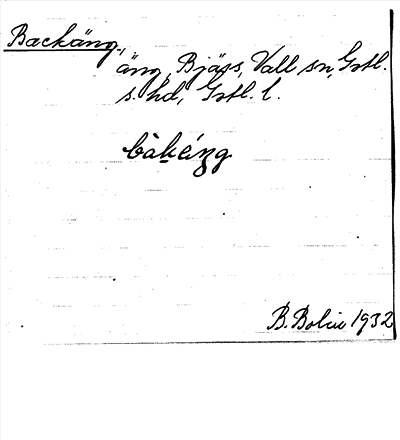 Backäng,
äng, Bjärs, Vall sn, Gotl.
s. hd, Gotl. l.
bàkéng
B. Bolin 1932